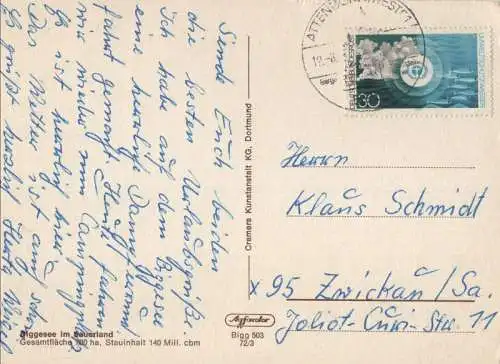 Sind Euch beiden
die Urlaubsgrüße.
Ich habe auf dem Biggesee
eine herrliche Dampfer
fahrt gemacht. Heute fahren
wir wieder zum Campingplatz
Es ist herrlich hier.
Das Wetter ist auch schön
Es grüßt herzlich Herta
Biggesee im Sauerland
Gesamtfläche 700 ha, Stauinhalt 140 Mill. cbm
Cramers Kunstanstalt KG, Dortmund
Bigg 503
72/3
ATTENDORN
30
Herrn
Klaus Schmidt
x 95 Zwickau/Sa.
Joliot-Curie-Str. 11